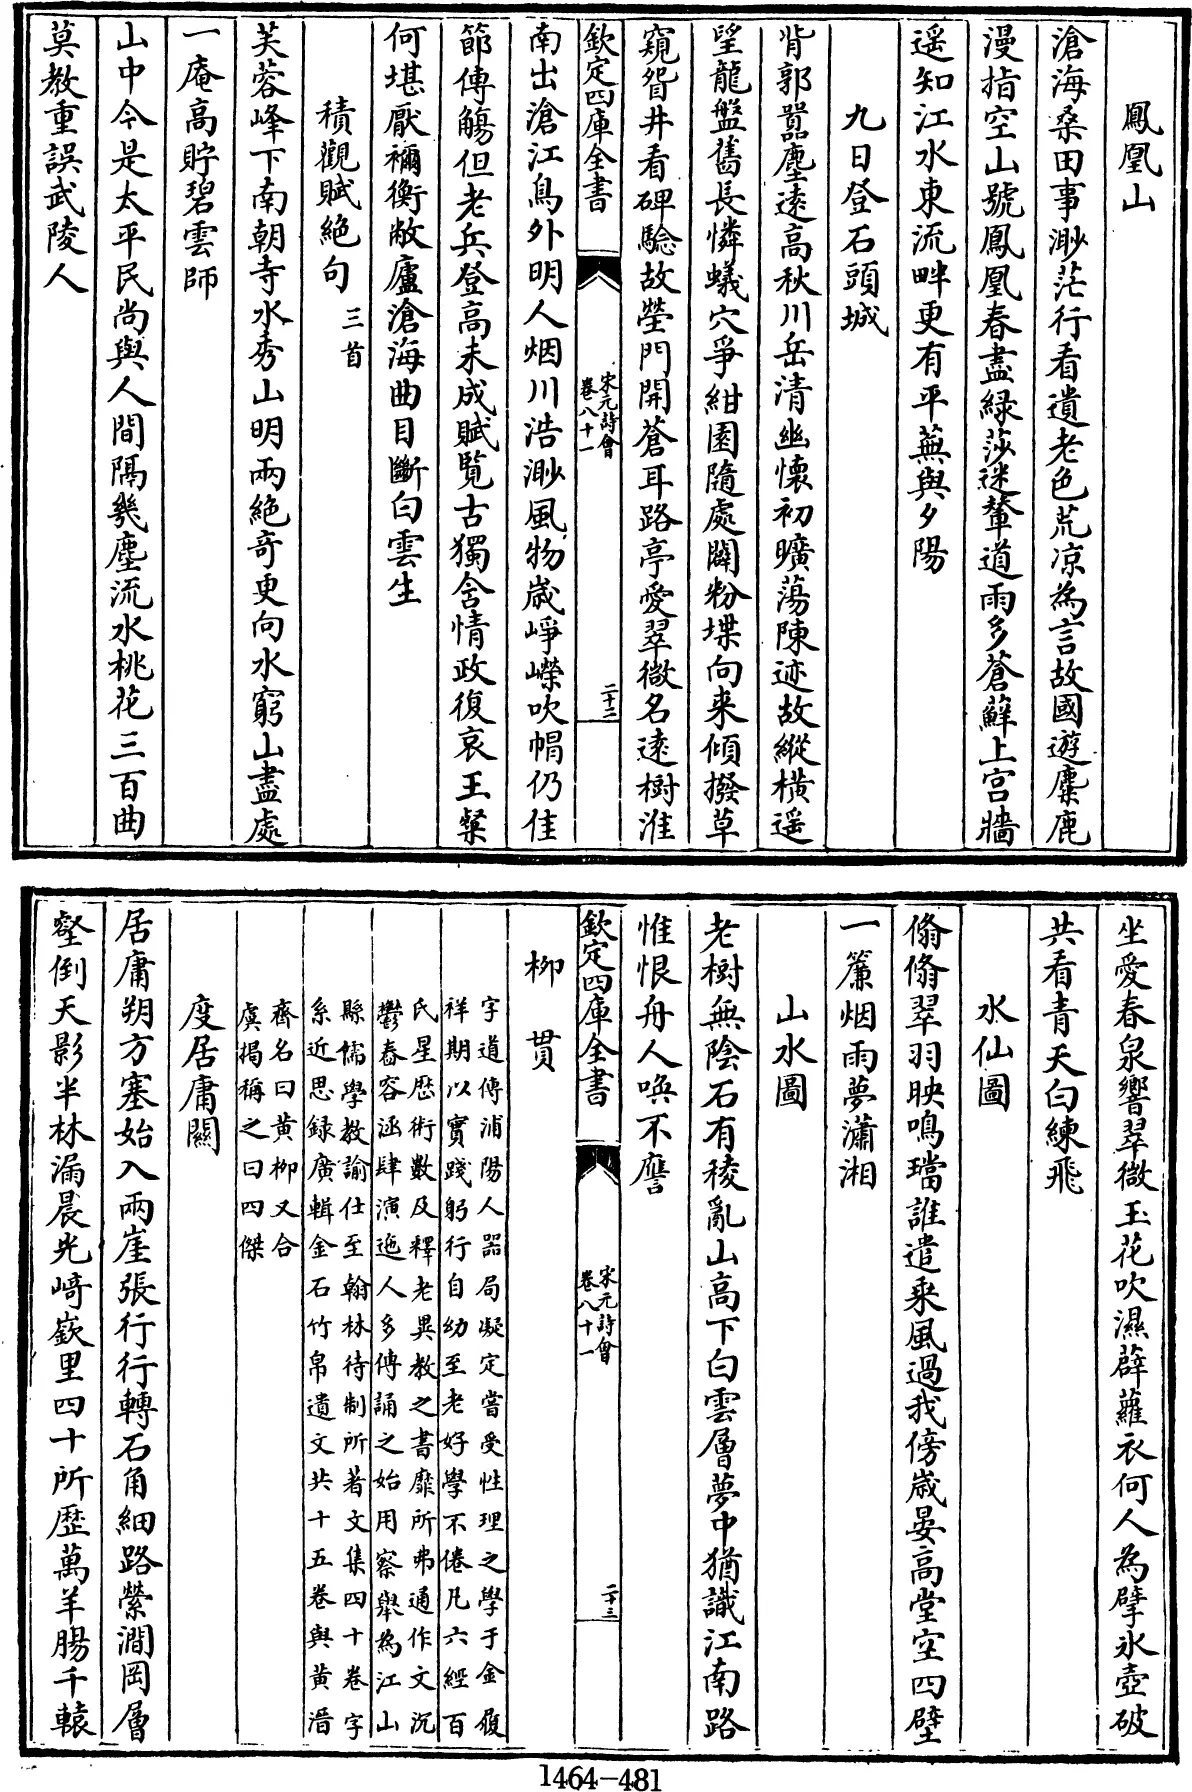 鳳凰山
滄海桑田事渺茫行看遺老色荒凉為言故國遊麋鹿
漫指空山號鳳凰春盡緑莎迷輦道雨多蒼蘚上宫牆
遥知江水東流畔更有平蕪與夕陽
九日登石頭城
背郭囂塵逺高秋川岳清幽懷初曠蕩陳迹故縱横遥
望龍盤舊長憐蟻穴爭紺園隨處闢粉堞向来傾撥草
窺眢井看碑驗故塋門開蒼耳路亭愛翠微名逺樹淮
欽定四庫全書
宋元詩會
卷八十一
二十二
南出滄江鳥外明人烟川浩渺風物嵗崢嶸吹帽仍佳
節傳觴但老兵登高未成賦覧古獨含情政復哀王粲
何堪厭禰衡敝廬滄海曲目斷白雲生
積觀賦絶句三首
芙蓉峰下南朝寺水秀山明兩絶奇更向水窮山盡處
一庵高貯碧雲師
山中今是太平民尚與人間隔幾塵流水桃花三百曲
莫教重誤武陵人
坐愛春泉響翠微玉花吹濕薜蘿衣何人為擘氷壺破
共看青天白練飛
水仙圖
翛翛翠羽映鳴璫誰遣乗風過我傍嵗晏高堂空四壁
一簾烟雨夢瀟湘
山水圖
老樹無陰石有稜亂山高下白雲層夢中猶識江南路
惟恨舟人喚不譍
欽定四庫全書
宋元詩會
卷八十一
二十三
柳貫
字道傳浦陽人器局凝定嘗受性理之學于金履
祥期以實踐躬行自幼至老好學不倦凡六經百
氏星厯術數及釋老異教之書靡所弗通作文沉
鬱舂容涵肆演迤人多傳誦之始用察舉為江山
縣儒學教諭仕至翰林待制所著文集四十卷字
系近思録廣輯金石竹帛遺文共十五卷與黄溍
齊名曰黄柳又合
虞揭稱之曰四傑
度居庸關
居庸朔方塞始入兩崖張行行轉石角細路縈澗岡層
壑倒天影半林漏晨光崎嶔里四十所歴萬羊腸千轅
1464-481